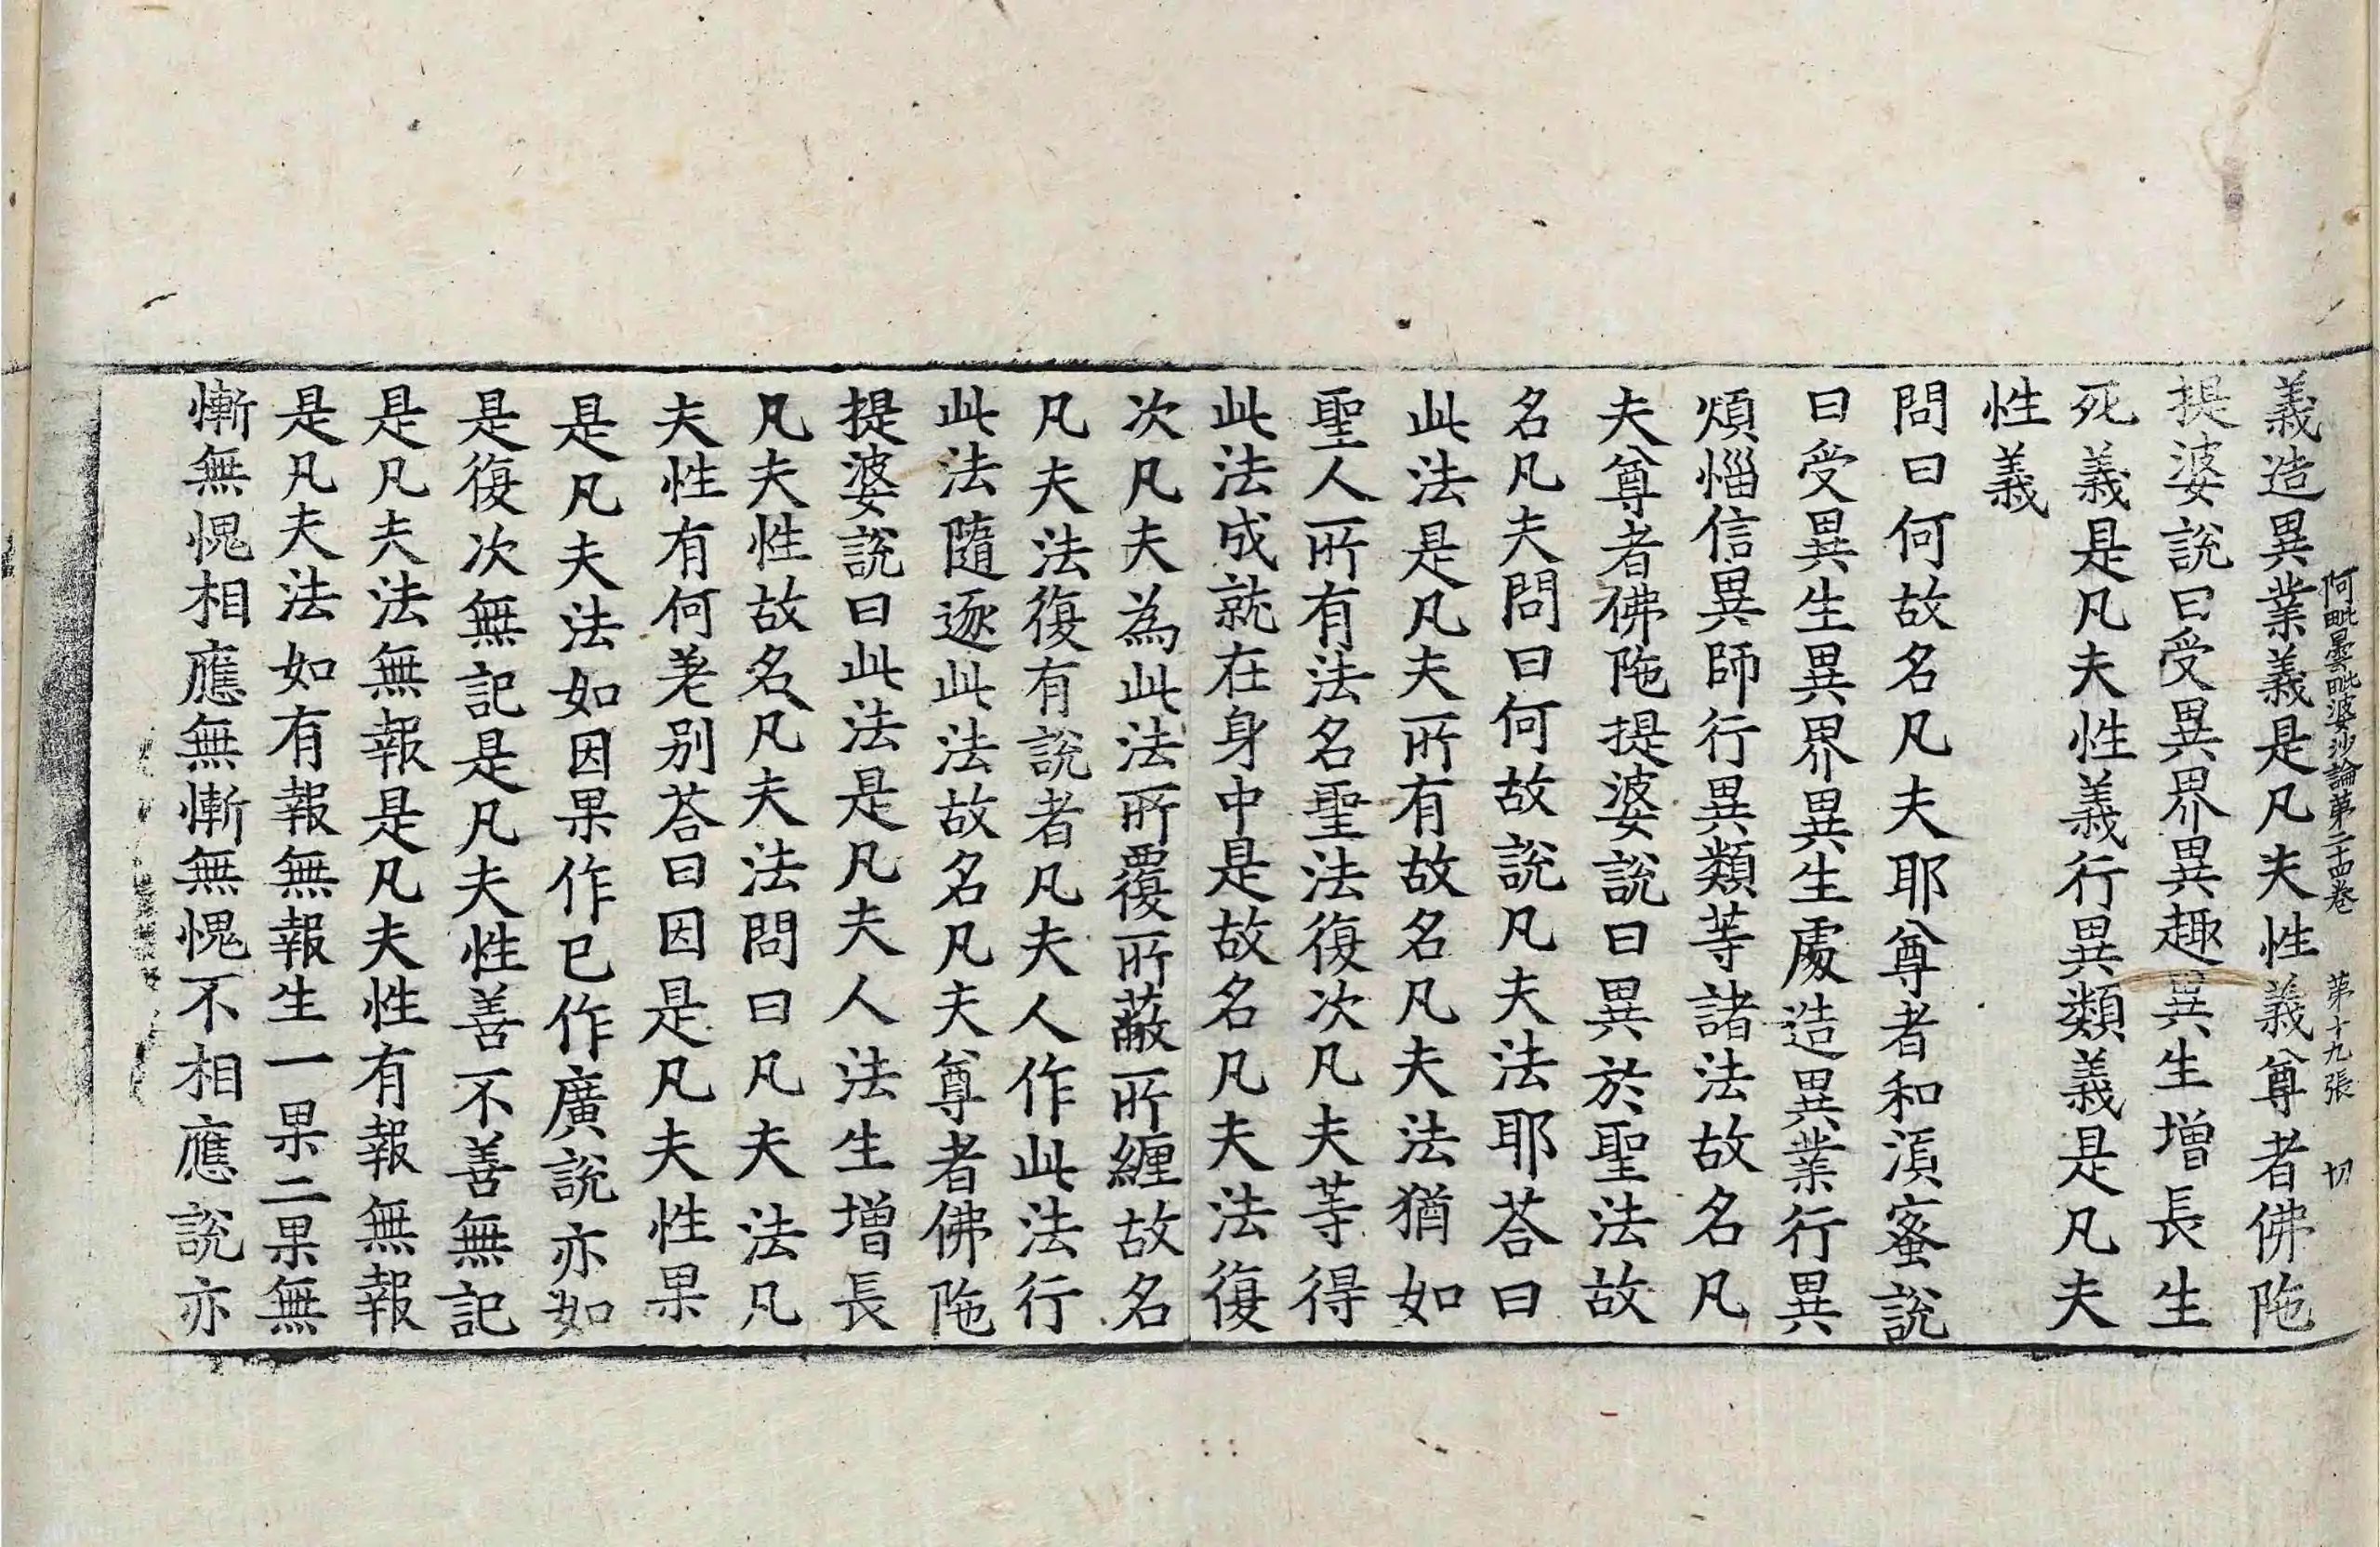 阿毗曇毗婆沙論第二十四卷 第十九張 切
義造異業義是凡夫性義尊者佛陁
提婆說曰受異界異趣異生增長生
死義是凡夫性義行異類義是凡夫
性義
問曰何故名凡夫耶尊者和湏蜜說
曰受異生異界異生處造異業行異
煩惱信異師行異類等諸法故名凡
夫尊者佛陁提婆說曰異於聖法故
名凡夫問曰何故說凡夫法耶荅曰
此法是凡夫所有故名凡夫法猶如
聖人所有法名聖法復次凡夫等得
此法成就在身中是故名凡夫法復
次凡夫為此法所覆所蔽所纏故名
凡夫法復有說者凡夫人作此法行
此法隨逐此法故名凡夫尊者佛陁
提婆說曰此法是凡夫人法生增長
凡夫性故名凡夫法問曰凡夫法凡
夫性有何差別荅曰因是凡夫性果
是凡夫法如因果作已作廣說亦如
是復次無記是凡夫性善不善無記
是凡夫法無報是凡夫性有報無報
是凡夫法如有報無報生一果二果無
慚無愧相應無慚無愧不相應說亦